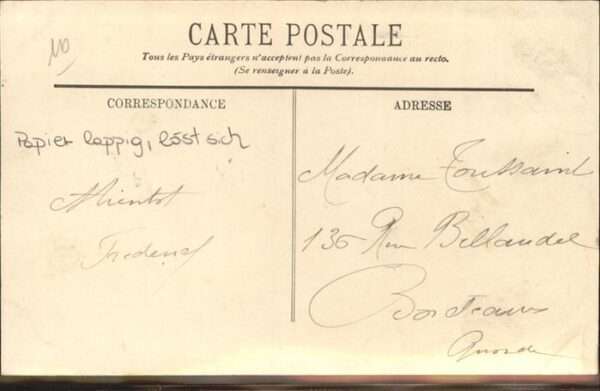 10
CARTE POSTALE
Tous les Pays étrangers n'acceptent pas la Correspondance au recto.
(Se renseigner à la Poste).
CORRESPONDANCE
ADRESSE
Papier lappig, löst sich
Madame Toussaint
136 Rue Billaudel
Bordeaux
Gironde